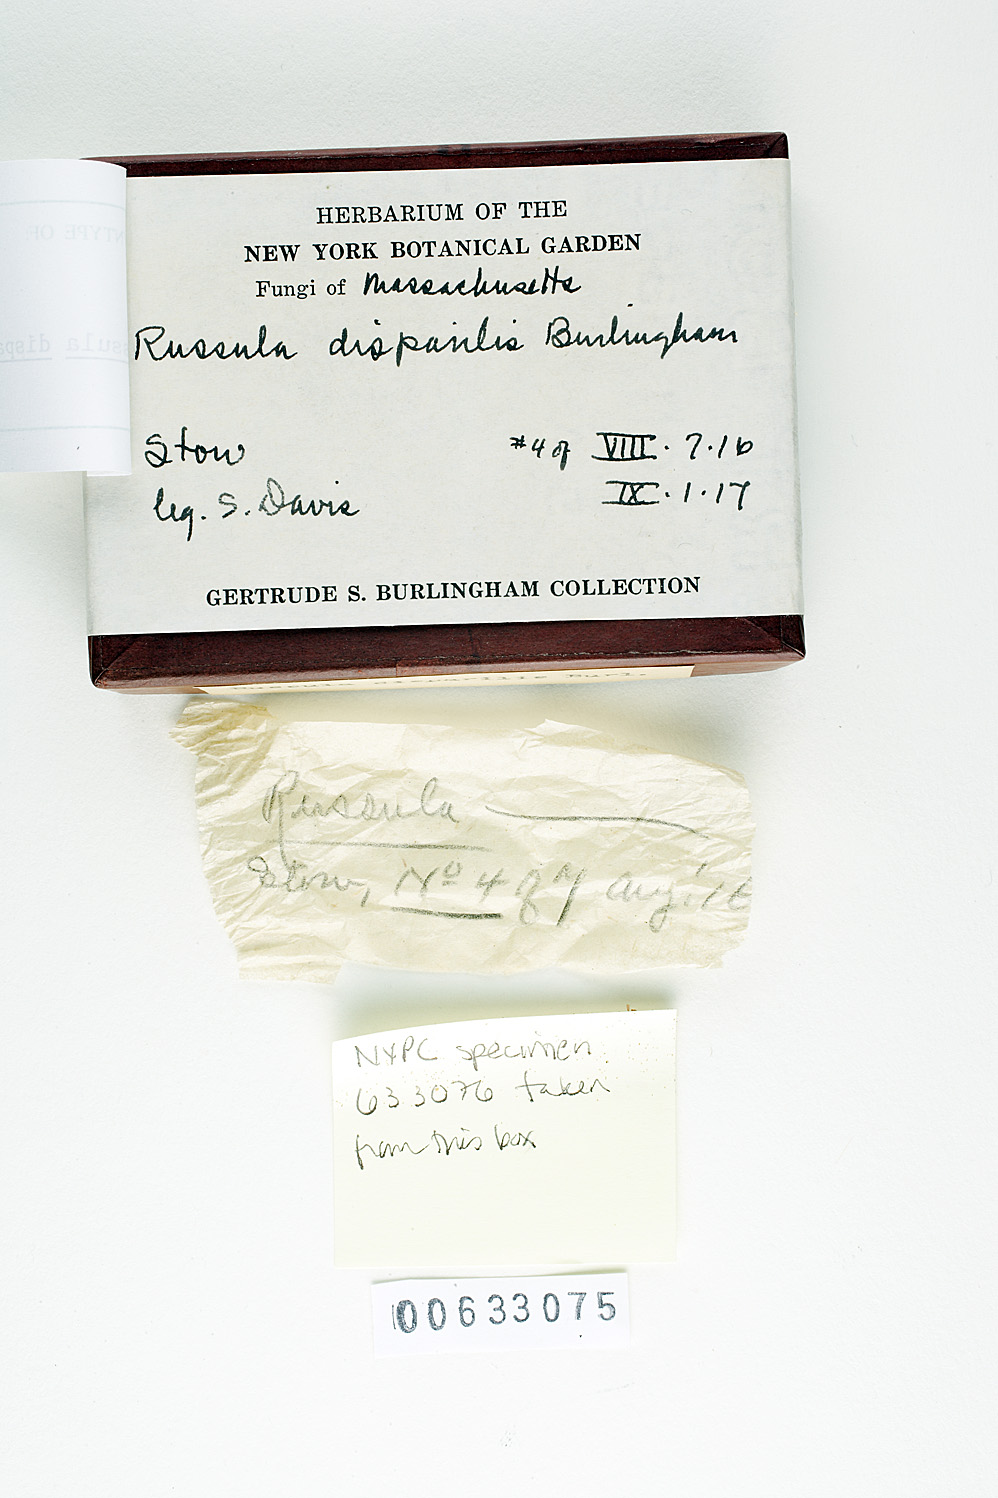 HERBARIUM OF THE
NEW YORK BOTANICAL GARDEN
Fungi of Massachusetts
Russula disparilis Burlingham
Stow
#4 of VIII. 7.16
leg. S. Davis
IX.1.17
GERTRUDE S. BURLINGHAM COLLECTION
Russula
Stow, No 4 of 7 Aug. '16
NYPC specimen
633076 taken
from this box
00633075